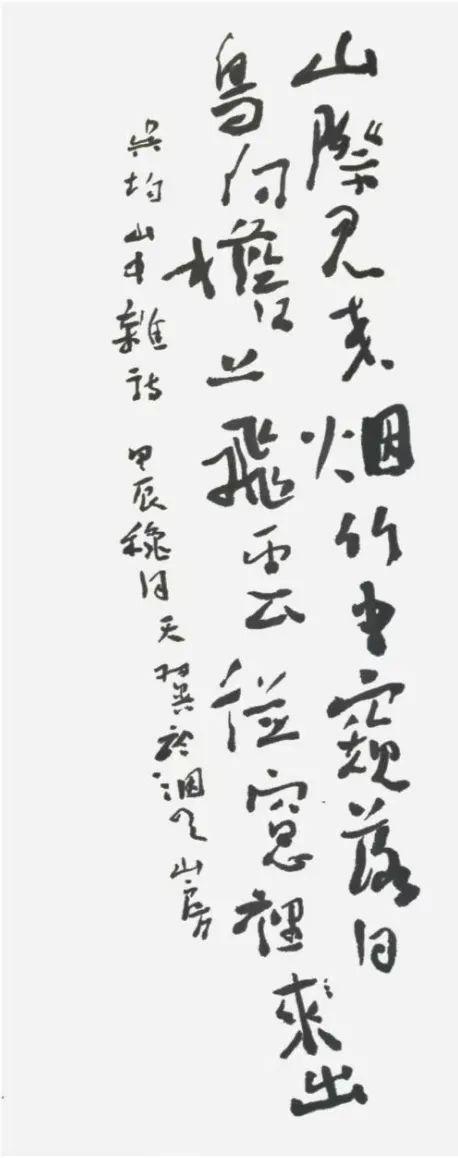 山際見来烟竹中窺落日
鳥向檐上飛雲從窗裡來出
吳均山中雜詩 甲辰穐日天翼於山房